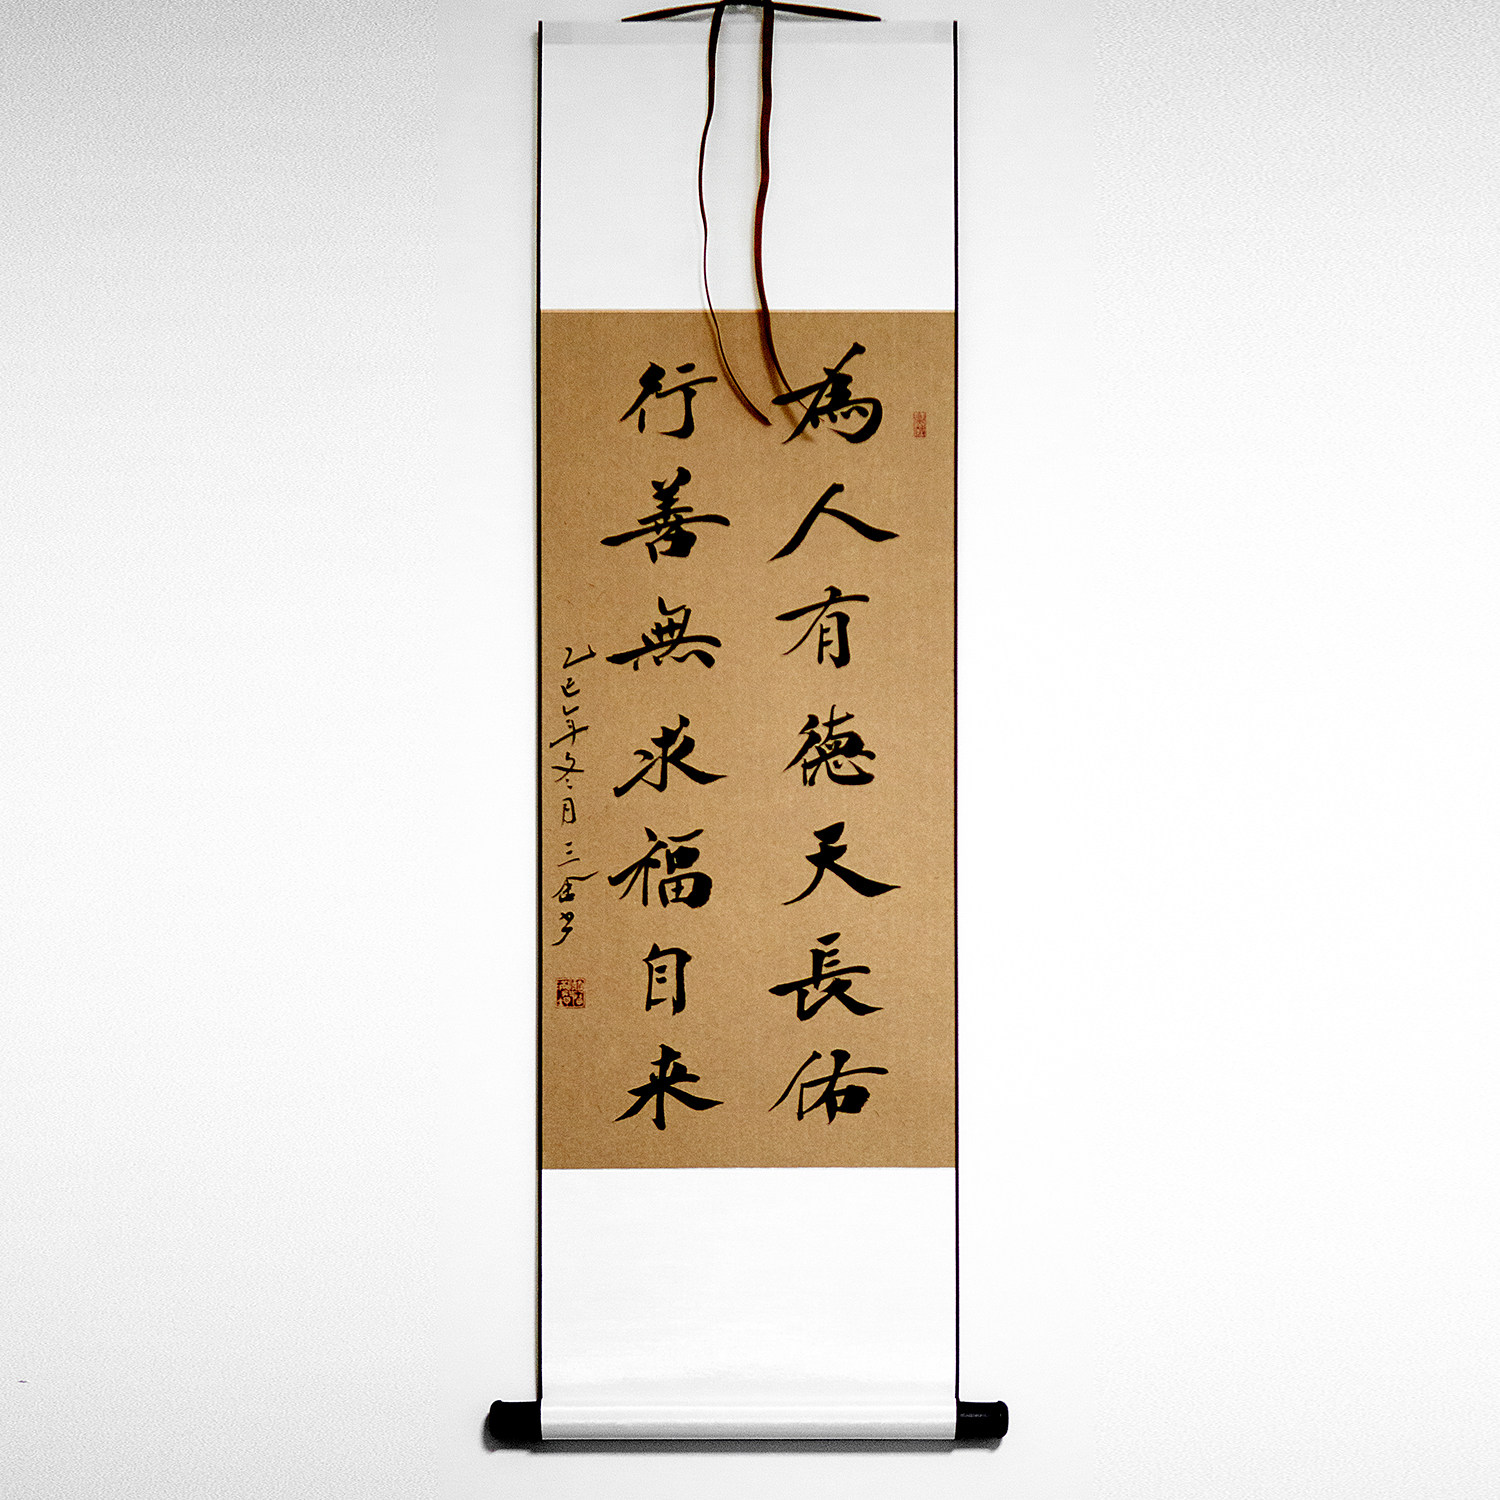 為人有德天長佑
行善無求福自来
乙巳年冬月三金